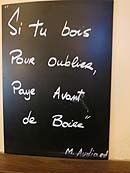 "Si tu bois
Pour oublier,
Paye Avant
de Boire"
M. Audiard